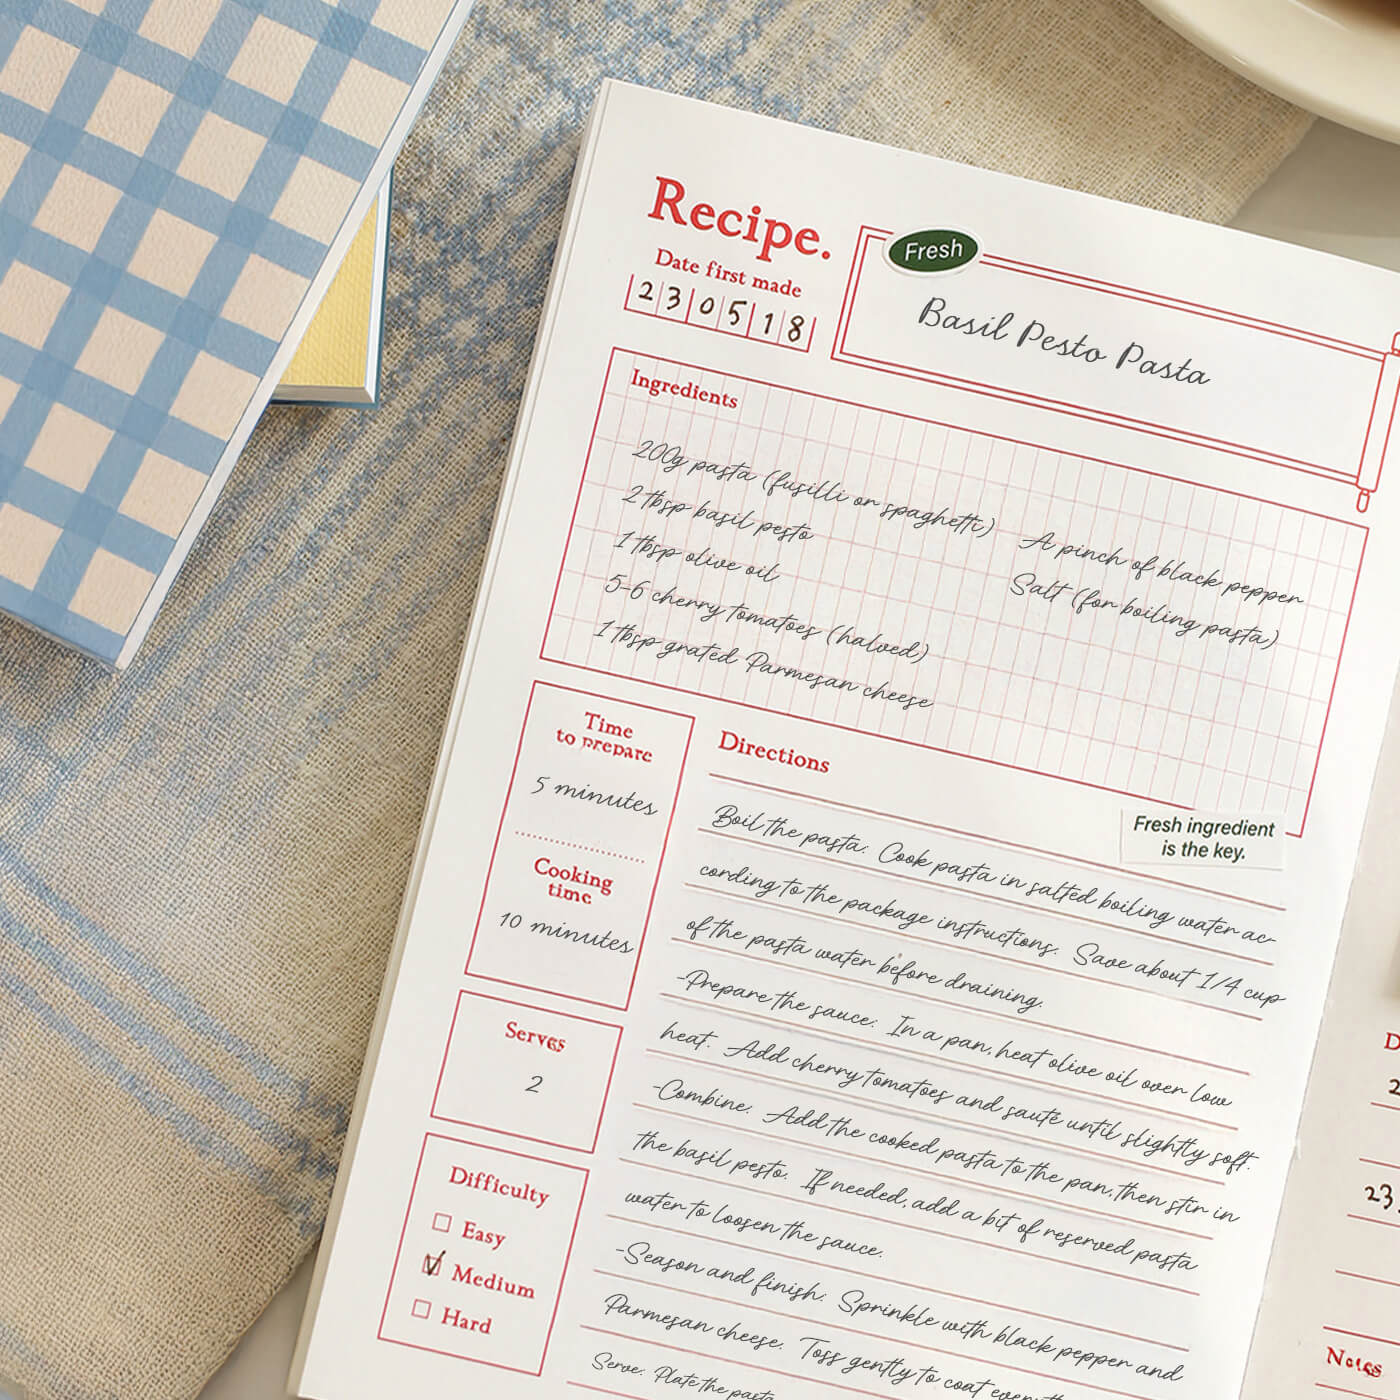 Recipe.
Date first made
230518
Fresh
Basil Pesto Pasta
Ingredients
200g pasta (fusilli or spaghetti)
2 tbsp basil pesto
1 tbsp olive oil
5-6 cherry tomatoes (halved)
1 tbsp grated Parmesan cheese
A pinch of black pepper
Salt (for boiling pasta)
Time
to prepare
5 minutes
Cooking
time
10 minutes
Serves
2
Difficulty
Easy
Medium
Hard
Directions
Fresh ingredient
is the key.
Boil the pasta: Cook pasta in salted boiling water ac-
cording to the package instructions. Save about 1/4 cup
of the pasta water before draining.
-Prepare the sauce: In a pan, heat olive oil over low
heat. Add cherry tomatoes and sauté until slightly soft.
-Combine: Add the cooked pasta to the pan, then stir in
the basil pesto. If needed, add a bit of reserved pasta
water to loosen the sauce.
-Season and finish: Sprinkle with black pepper and
Parmesan cheese. Toss gently to coat
Serve: Plate the pasta
23
Notes